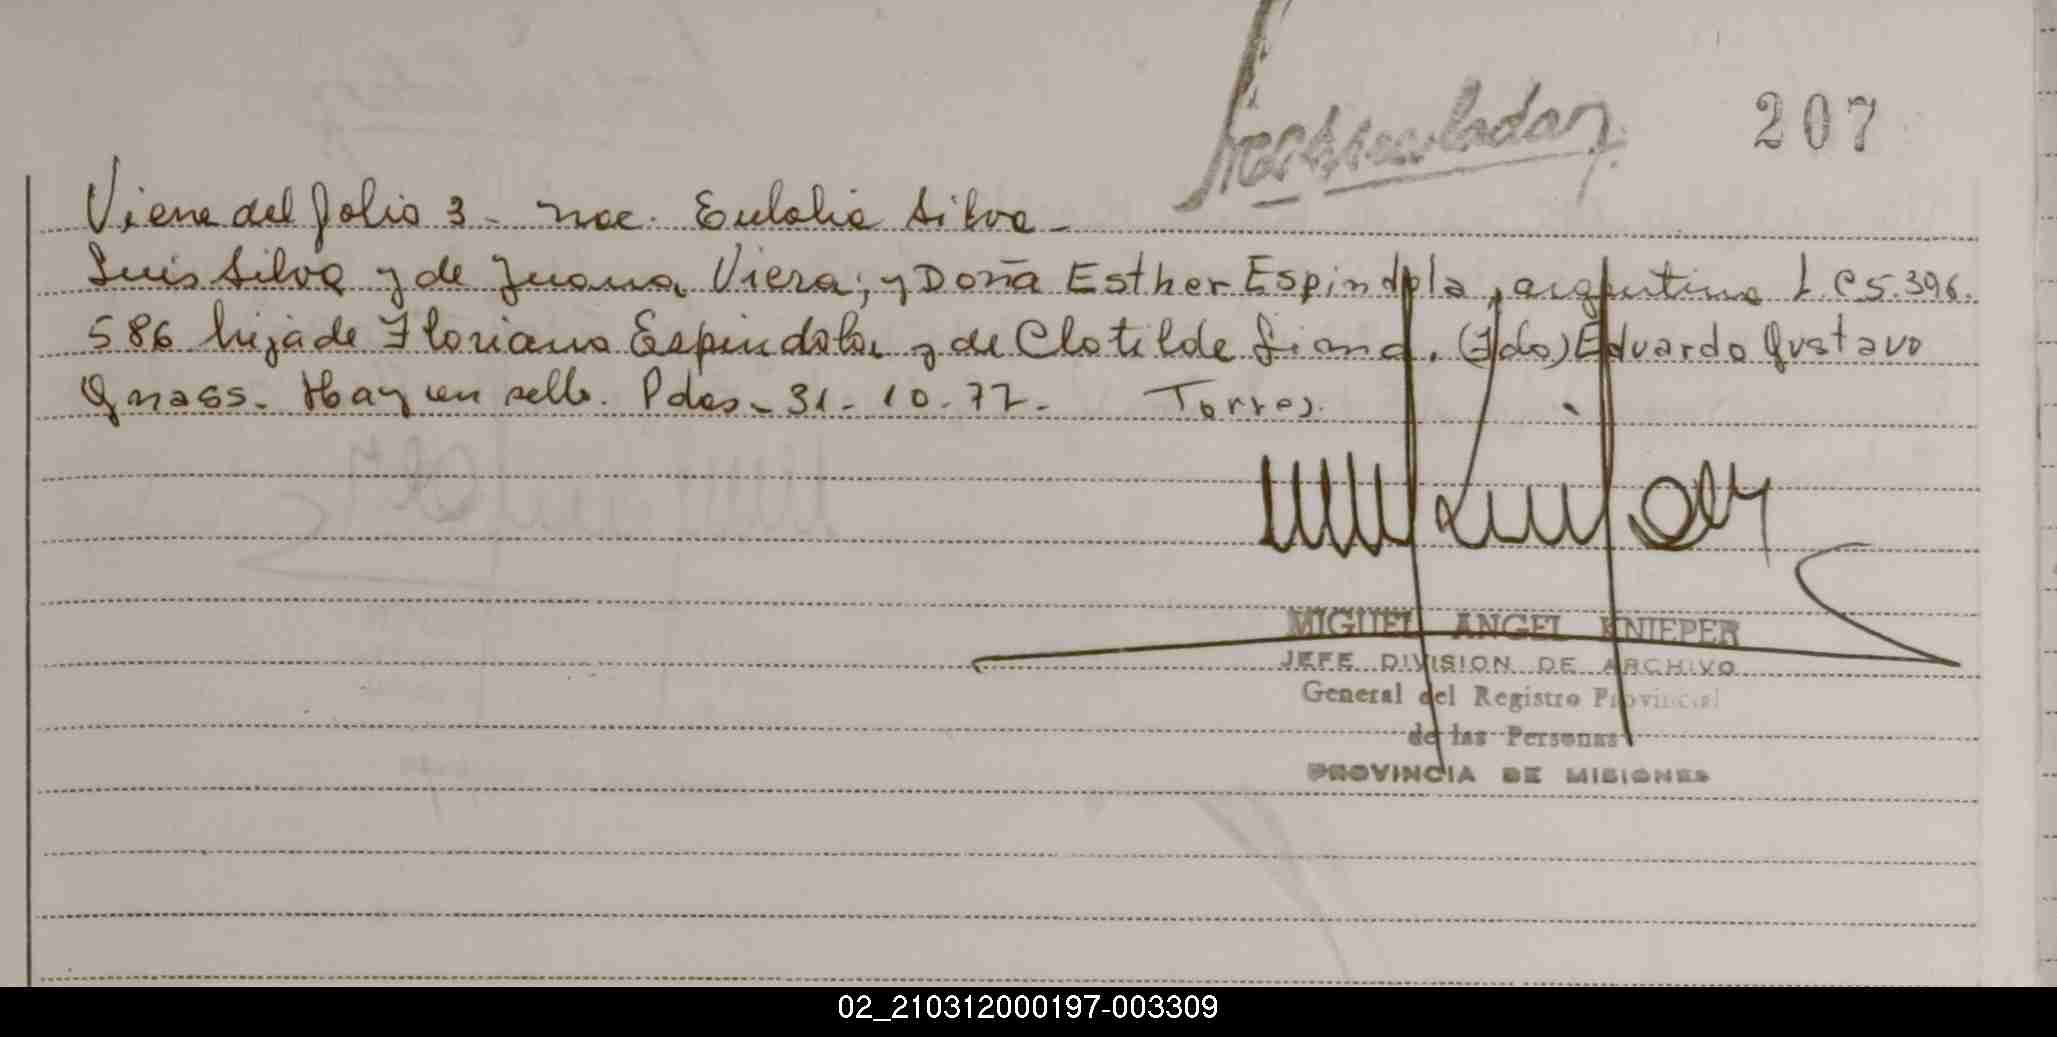 207
Viene del folio 3 - nac. Eulalia Silva -
Luis Silva y de Juana Viera; y Doña Esther Espindola, argentina L.C 5.396.
586 hija de Floriano Espindola y de Clotilde . (Fdo) Eduardo Gustavo
Gnass. Hay un sello. Pdas - 31 - 10 - 77 - Torres.
MIGUEL ANGEL KNIEPER
JEFE DIVISION DE ARCHIVO
General del Registro Provincial
de las Personas
PROVINCIA DE MISIONES
02_210312000197-003309